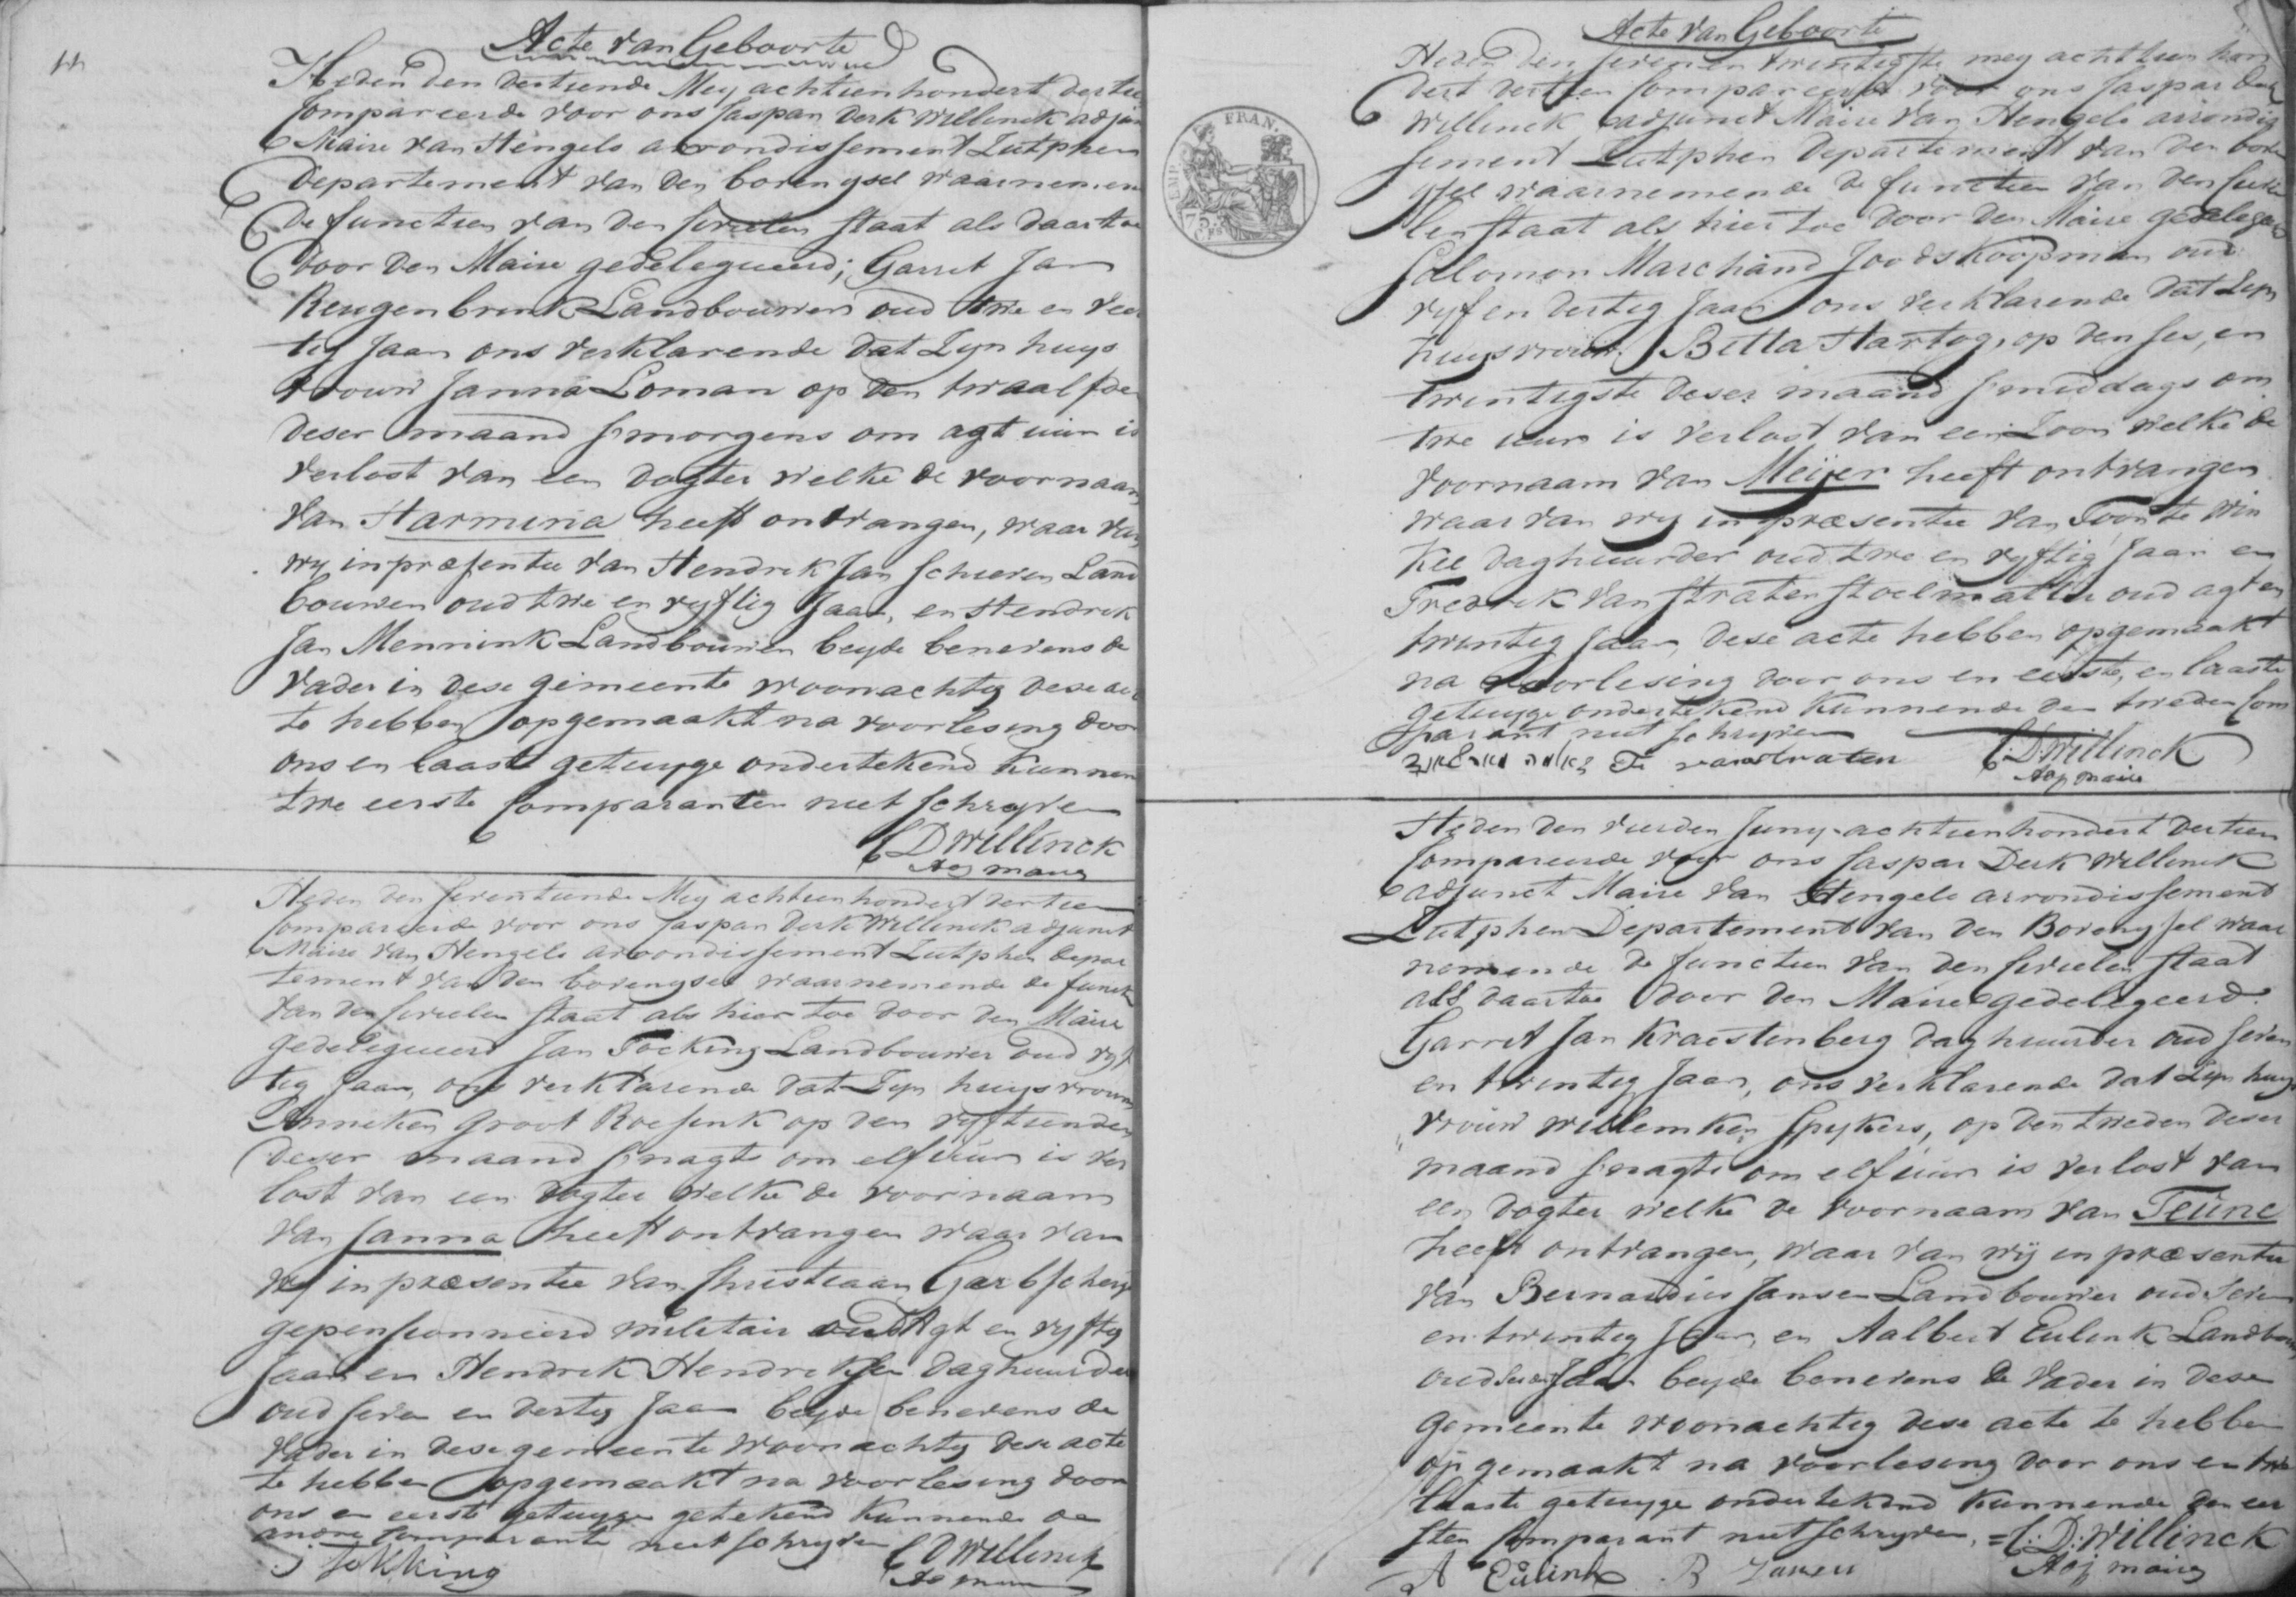 Acte van Geboorte
Heden den dertiende Mey achtienhondert dertie
Compareerde voor ons Caspar Derk Willinck adjun
Maire van Hengelo arrondissement Zutphen
Departement van den bovenyssel waarnemen
De functien van den Civielen Staat als daartoe
door den Maire gedelegueerd; Garrit Jan
Reugenbrink Landbouwer oud twe en veer
tig Jaar ons verklarende dat Zyn huys
vrouw Janna Loman op den twaalfde
deser maand smorgens om agt uur is
verlost van een dogter welke de voornaam
van Harmina heeft ontvangen, waar van
wy in præsentie van Hendrik Jan Schieven Land
bouwer oud twe en vyftig Jaar, en Hendrik
Jan Mennink Landbouwer beyde benevens de
vader in dese gemeente woonachtig dese ac
te hebben opgemaakt na voorlesing door
ons en laaste getuyge ondertekend kunnen
twe eerste Comparanten niet schryven
CD Willinck
Adj maire
Heden den seventiende Mey achtienhondert dertien
Compareerde voor ons Caspar Derk Willinck adjunct
Maire van Hengelo arrondissement Zutphen depar
tement van den bovenyssel waarnemende de funct
van den Civielen Staat als hier toe door den Maire
gedelegueerd Jan Tocking Landbouwer oud vyf
tig Jaar, ons verklarende dat Zyn huysvrouw
Anneken Groot Roesink op den vyftienden
deser maand snagts om elf uur is ver
lost van een dogter welke de voornaam
van Janna heeft ontvangen waar van
wy in præsentie van Christiaan
gepensionneerd militair oud Agt en vyftig
Jaar en Hendrik Hendriksen daghuurder
oud seven en dertig Jaar beyde benevens de
vader in dese gemeente woonachtig dese acte
te hebben opgemaakt na voorlesing door
ons en eerste getuyge getekend kunnende de
andre Comparante niet schryven
J Tokking CD Willinck
Adj maire
Acte van Geboorte
Heden den seven en twintigste mey achttien hon
dert dertien Compareerde voor ons Caspar Derk
Willinck adjunct Maire van Hengelo arrondis
sement Zutphen Departement van den boven
yssel waarnemende de functien van den Civie
len Staat als hier toe door den Maire gedelegeerd
Salomon Marchand Joods Koopman oud
vyf en dertig Jaar ons verklarende dat Zyn
huysvrouw Betta Hartog, op den ses en
twintigste deser maand smiddags om
twe uur is verlost van een Zoon welke de
voornaam van Meijer heeft ontvangen
waar van wy in præsentie van Toon te Win
kel daghuurder oud twe en vyftig Jaar en
Fredrik van Straten Stoelmatter oud agt en
twintig Jaar, dese acte hebben opgemaakt
na voorlesing door ons en eerste, en laaste
getuyge ondertekend kunnende den tweden Com
parant niet schryven
F. van Straten C:D:Willinck
Adj maire
Heden den vierden Juny achttienhondert dertien
Compareerde voor ons Caspar Derk Willinck
adjunct Maire van Hengelo arrondissement
Zutphen Departement van den Bovenyssel waar
nemende de functien van den Civielen Staat
als daartoe door den Maire gedelegeerd
Garrit Jan Kraestenberg daghuurder oud seven
en twintig Jaar, ons verklarende dat Zyn huys
vrouw Willemken Spykers, op den tweden deser
maand snagts om elf uur is verlost van
een dogter welke de voornaam van Teune
heeft ontvangen, waar van wij in præsentie
van Bernardus Jansen Landbouwer oud seven
en twintig Jaar, en Aalbert Eulink Landbou
oud Jaar beyde benevens de vader in dese
gemeente woonachtig dese acte te hebben
op gemaakt na voorlesing door ons en twe
laaste getuyge ondertekend kunnende den eer
sten Comparant niet schryven. = C:D:Willinck
A Eulink B Jansen Adj maire
FRAN.
EMP.
75